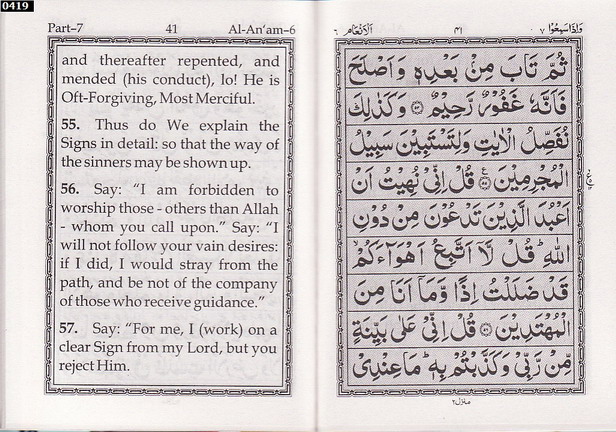 0419
Part–7 41 Al-An‘am–6
and thereafter repented, and
mended (his conduct), lo! He is
Oft-Forgiving, Most Merciful.
55. Thus do We explain the
Signs in detail: so that the way of
the sinners may be shown up.
56. Say: “I am forbidden to
worship those - others than Allah
- whom you call upon.” Say: “I
will not follow your vain desires:
if I did, I would stray from the
path, and be not of the company
of those who receive guidance.”
57. Say: “For me, I (work) on a
clear Sign from my Lord, but you
reject Him.
وَاِذَا سَمِعُوْا ۷ ۴۱ اَلْاَنْعَام ۶
ثُمَّ تَابَ مِنْۢ بَعْدِهٖ وَاَصْلَحَ
فَاَنَّهٗ غَفُوْرٌ رَّحِيْمٌ ۝۵۴ وَكَذٰلِكَ
نُفَصِّلُ الْاٰيٰتِ وَلِتَسْتَبِيْنَ سَبِيْلُ
الْمُجْرِمِيْنَ ۝۵۵ قُلْ اِنِّيْ نُهِيْتُ اَنْ
اَعْبُدَ الَّذِيْنَ تَدْعُوْنَ مِنْ دُوْنِ
اللّٰهِ ؕ قُلْ لَّاۤ اَتَّبِعُ اَهْوَآءَكُمْ ۙ
قَدْ ضَلَلْتُ اِذًا وَّمَاۤ اَنَا مِنَ
الْمُهْتَدِيْنَ ۝۵۶ قُلْ اِنِّيْ عَلٰى بَيِّنَةٍ
مِّنْ رَّبِّيْ وَكَذَّبْتُمْ بِهٖ ؕ مَا عِنْدِيْ
منزل ۲